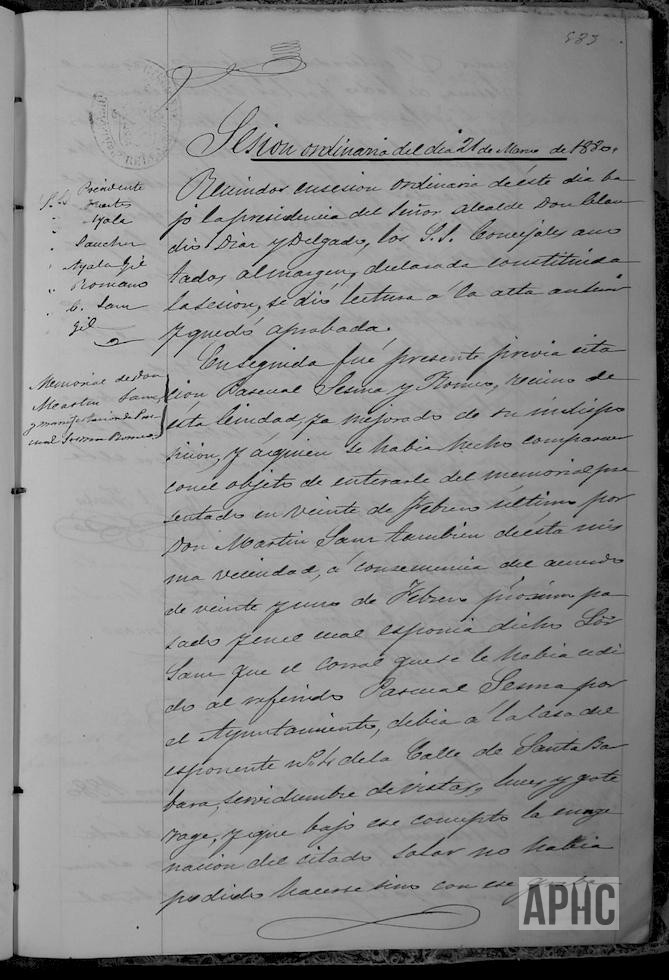 583
Sesion ordinaria del dia 21 de Marzo de 1880.
S.S. Presidente
" Ayala
" Sanchez
" Ayala Gil
" Romano
" C. Sanz
Gil
Reunidos en sesion ordinaria de éste dia ba
jo la presidencia del Señor Alcalde Don Clau
dio Diaz y Delgado, los S.S. Concejales ano
tados al margen, declarada constituida
la sesion, se dió lectura á la acta anterior
y quedó aprobada.
Memorial de Don
Martin Sanz,
y manifestacion de Pas-
cual Sesma Romeo
Enseguida fué presente previa cita
cion Pascual Sesma y Romeo, vecino de
ésta Ciudad, ya mejorado de su indispo
sicion, y á quien se habia hecho comparecer
con el objeto de enterarle del memorial pre
sentado en veinte de Febrero último por
Don Martin Sanz tambien de ésta mis
ma vecindad, á consecuencia del acuerdo
de veinte y uno de Febrero próximo pa
sado y en el cual esponia dicho Sor
Sanz que el corral que se le habia cedi
do al referido Pascual Sesma por
el Ayuntamiento, debia á la casa del
esponente nº 4 de la Calle de Santa Bar
bara, servidumbre de vistas, luces y gote
rage, y que bajo ese concepto la enage
nacion del citado solar no habia
podido hacerse sino con ese
APHC